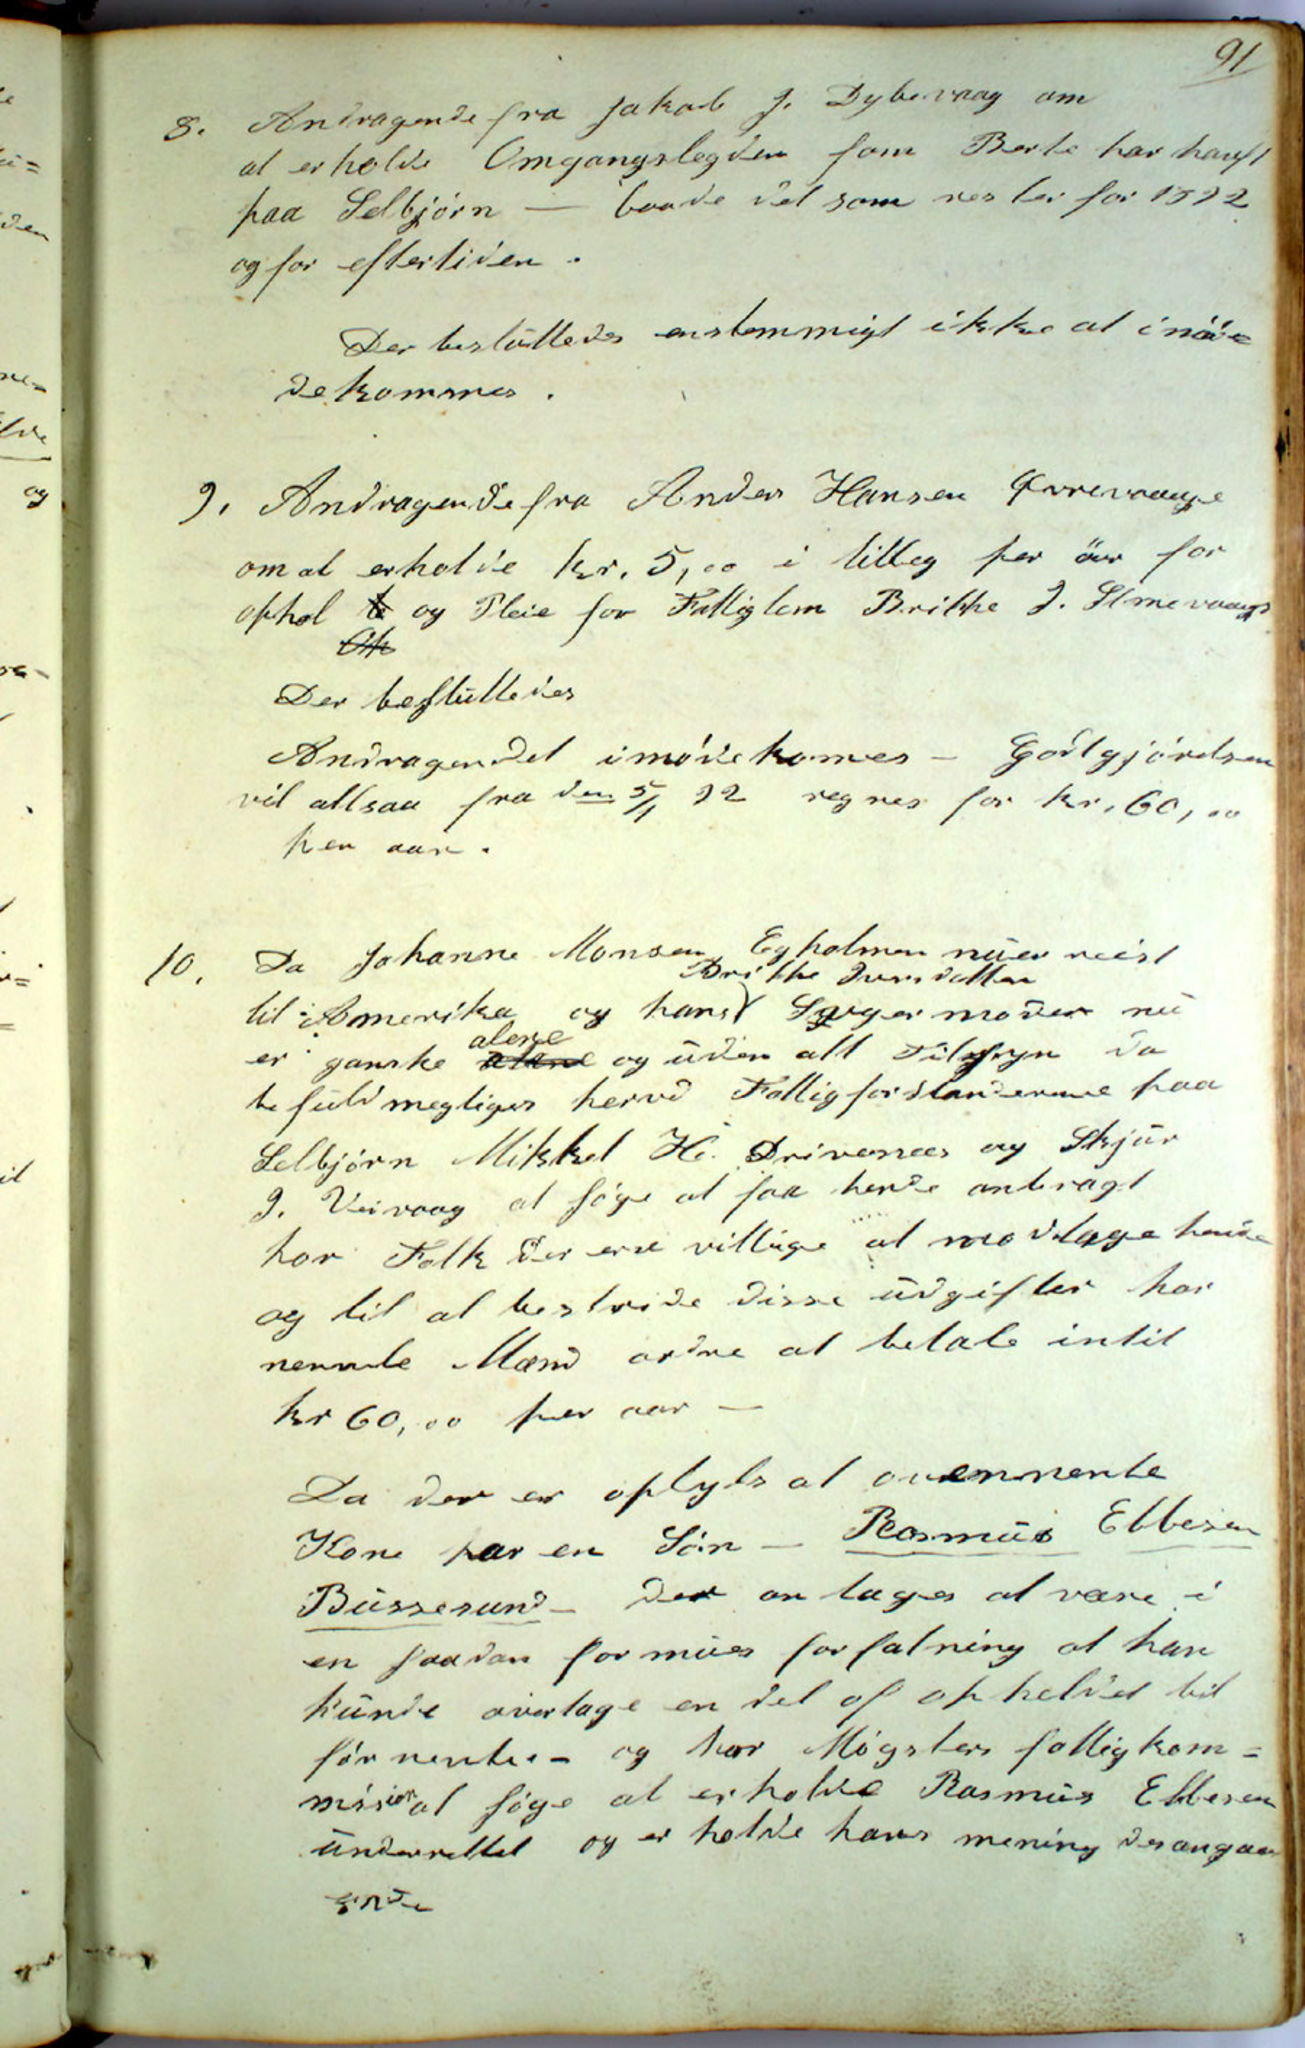 91
8. Andragende fra Jakob J. Dybevaag om
at erholde Omgangslegden som Berte har havst
paa Selbjörn — baade det som rester for 1892
og for eftertiden.
Der beslüttedes enstemmigt ikke at imöe
dekommes.
9. Andragende fra Anders Hansen
om at erholde kr. 5,00 i tilleg per åar for
ophol og Pleie for Fattiglem Brithe J.
Der besluttedes
Andragendet imödekomes — Godtgjörelsen
vil altsaa fra den 5/1 92 regnes for kr. 60,00
per aar.
10. Da Johanne Monsen Egholmen nü er reist
Brithe Iversdatter
til Amerika og hans Svigermoder nü
alene
er ganske alene og üden alt Tilsyn da
befüldmegtiges herved Fattigforstanderne paa
Selbjörn Mikkel H. Drivenees og Skjür
J. Veivaag at söge at faa hende anbragt
hor Folk der ere villige at modtage hende
og til at bestride disse üdgifter har
nevnte Mænd ordre at betale intil
kr 60,00 per aar —
Da der er oplyts at ovennevnte
Kone har en Sön — Rasmüs Ebbesen
Büssesund — der antages at være i
en saadan formües forfatning at han
künde overtage en del af opheldet til
förnevnte — og har Mögsters fattigkom=
mision at söge at erholde Rasmüs Ebbesen
ünderrettet og erholde hans mening desangaa
ende